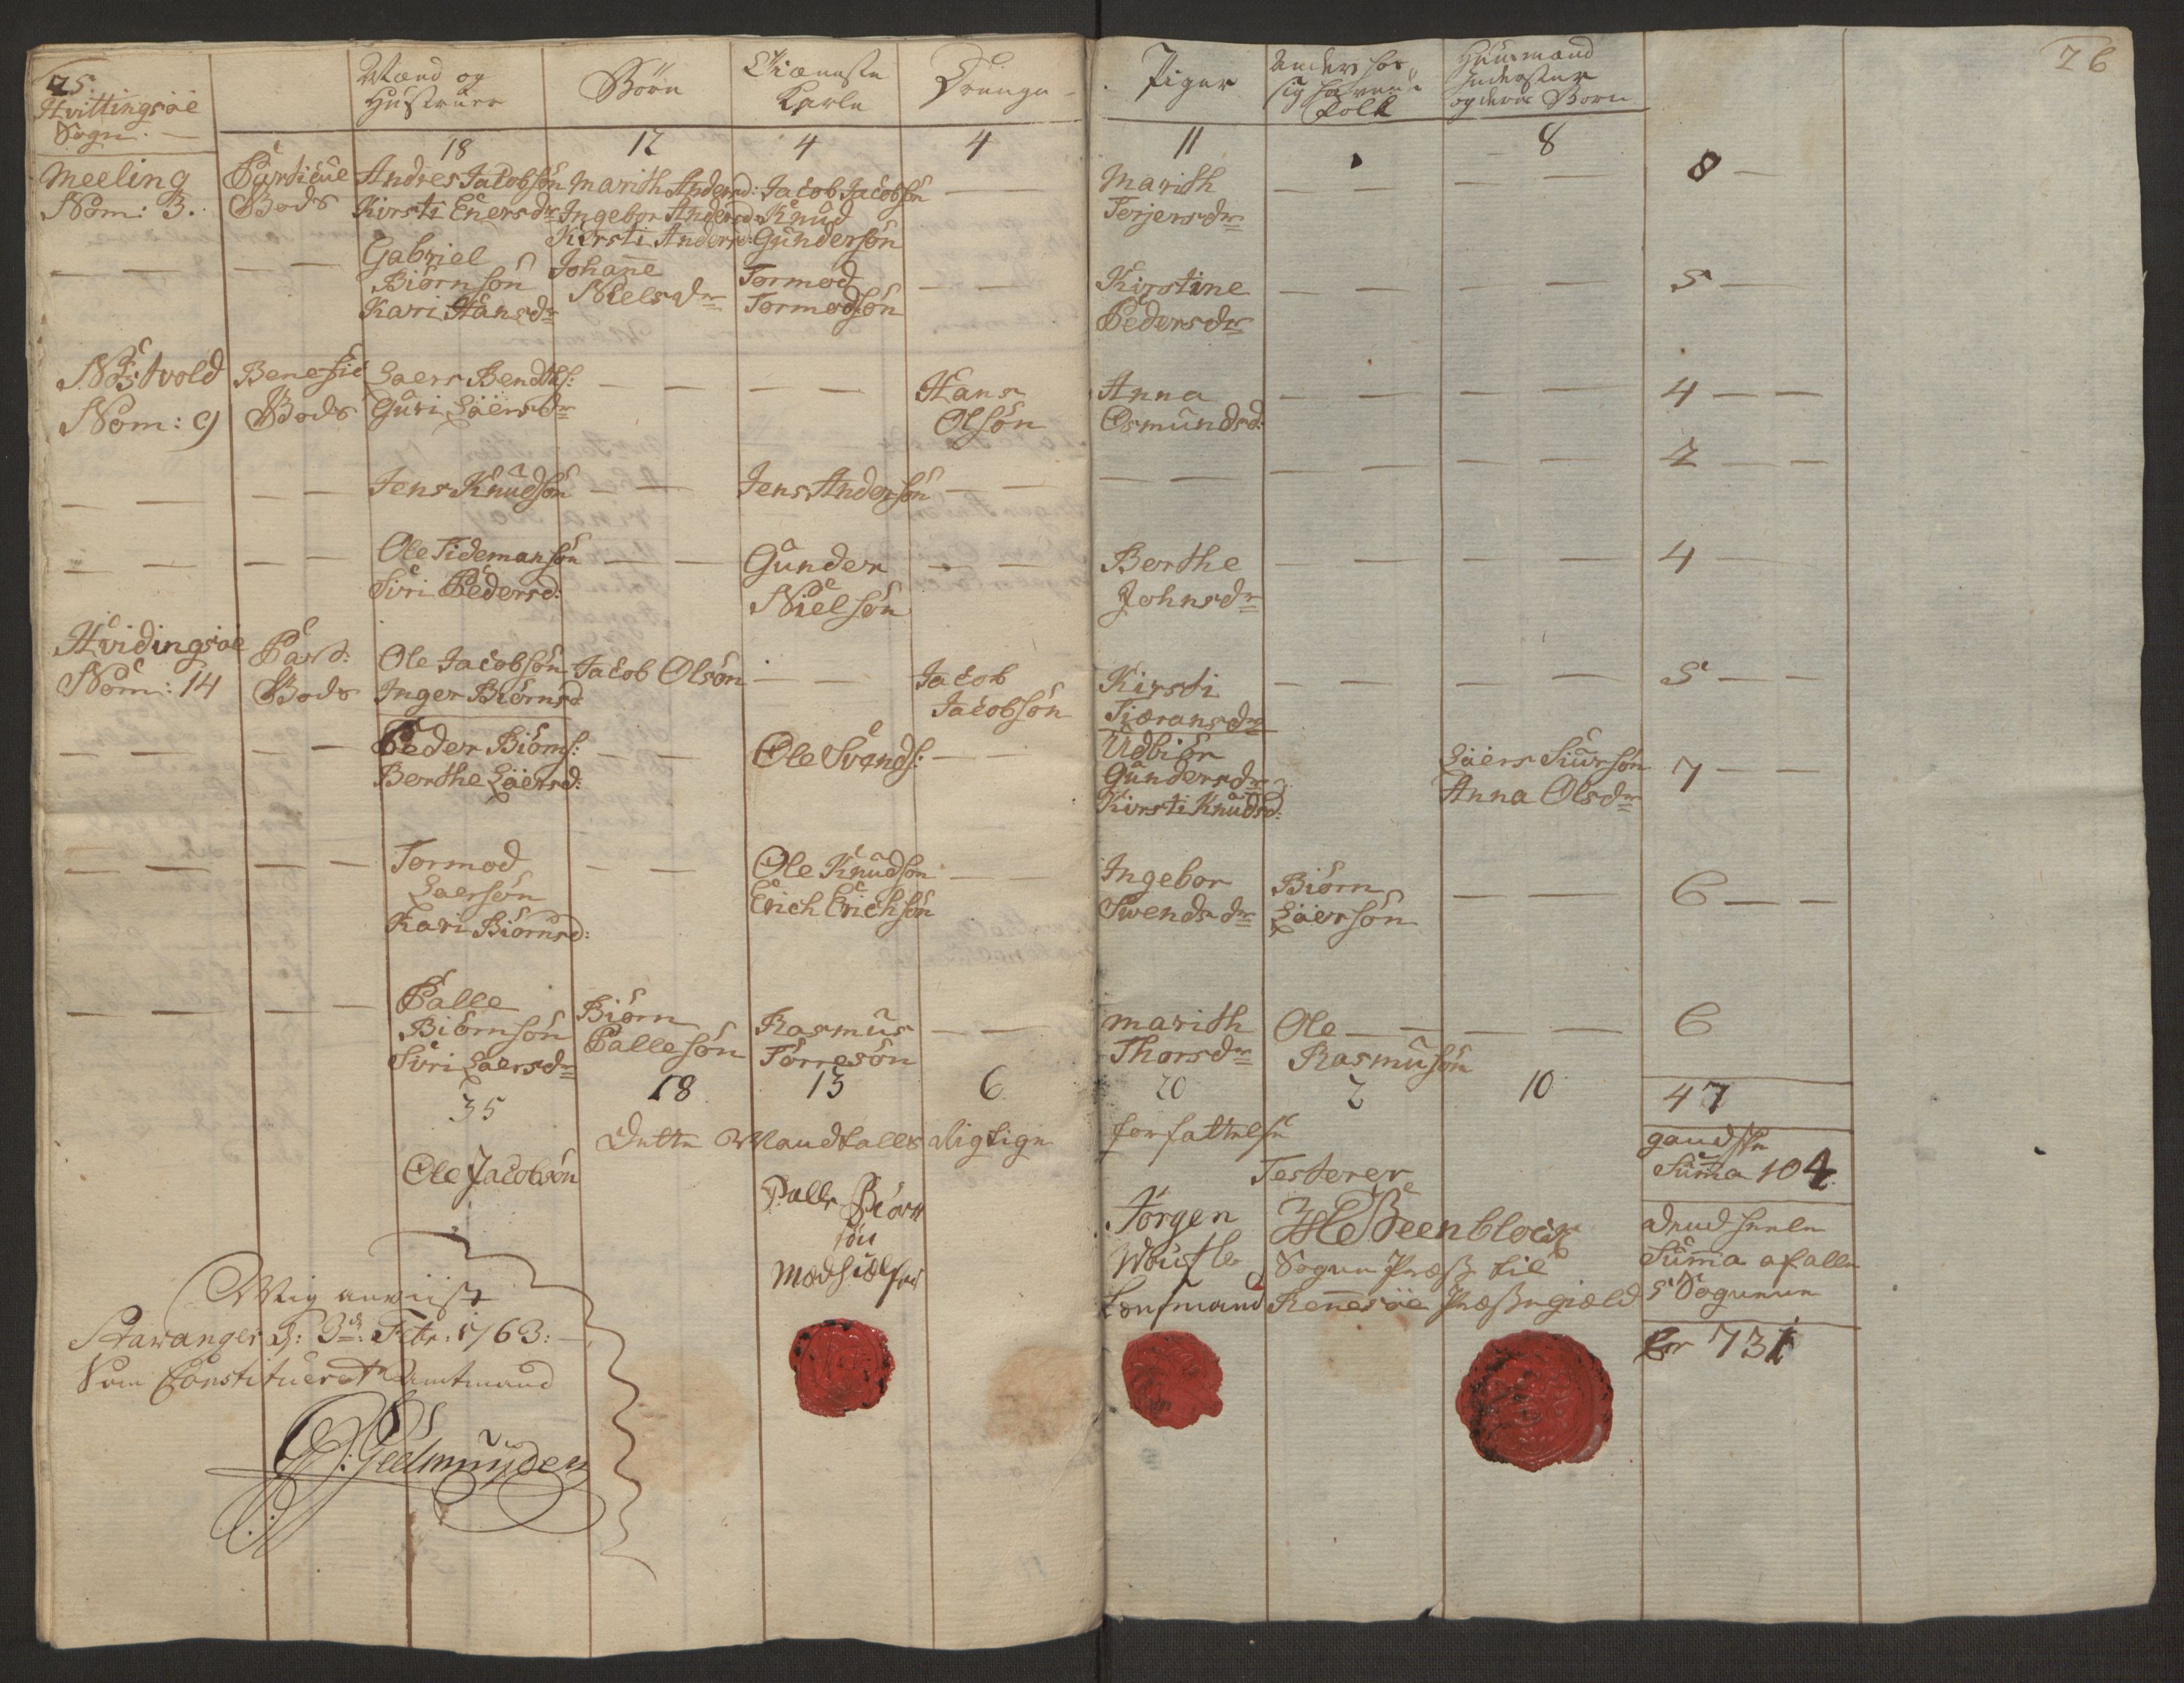 25.
Hvittingsöe
Sogn.
Mænd og
Hustruer
Börn
Tiæneste
Karle
Drenge
Piger
Andre hos
sig havende
Folk
Huusmænd
Inderster
og deres Born
26
18 12 4 4 11 8
Meeling
Nom: 3.
Particue
Bods
Andres Jacobsön
Kirsti Enersdr
Marith Andersd:
Ingebor Andersd
Kirsti Andersd:
Jacob Jacobsön
Knud
Gundersön
Marith
Terjersdr
8
Gabriel
Biörnsön
Kari Hansdr
Johañe
Nielsdr
Tormod
Tormodsön
Kirstine
Pedersdr
5
Nom: 9
Benefic
Bods
Laers Bendtks:
Guri Laersdr
Hans
Olsön
Anna
Osmundsd:
4
Jens Knudsön
Jens Andersön
2
Ole Tidemansön
Siri Pedersd:
Gunder
Nielsön
Berthe
Johnsdr
4
Hvidingsöe
Nom: 14
Part:
Bods
Ole Jacobsön
Inger Biörnsd
Jacob Olsön
Jacob
Jacobsön
Kirsti
Tiæransdr
5
Peder Biörns:
Berthe Laersd:
Ole Svends:
Udbiör
Gundersdr
Kirsti Knudsd:
Laers Siursön
Anna Olsdr
7
Tormod
Laersön
Kari Biörnsd:
Ole Knudsön
Erich Erichsön
Ingebor
Svendsdr
Biörn
Laersön
6
Palle
Biörnsön
Siri Laersdr
Biörn
Pallesön
Rasmus
Törresön
Marith
Thorsdr
Ole
Rasmusön
6
35 18 13 6 20 2 10 47
Dette Mandtalls Rigtige forfattelse
Testerer
gandske
Sum̃a 104
Ole Jacobsön
Palle Biörn
sön
Medhielper
Jörgen
Lensmand
Sogne Præst til
Ren̄esöe Præstegield
Sum̃a af alle
5 Sognene
er 731
Mig anviist
Stavanger d: 3de: Febr: 1763:
Som Constitueret Amtmand
Geelmuyden